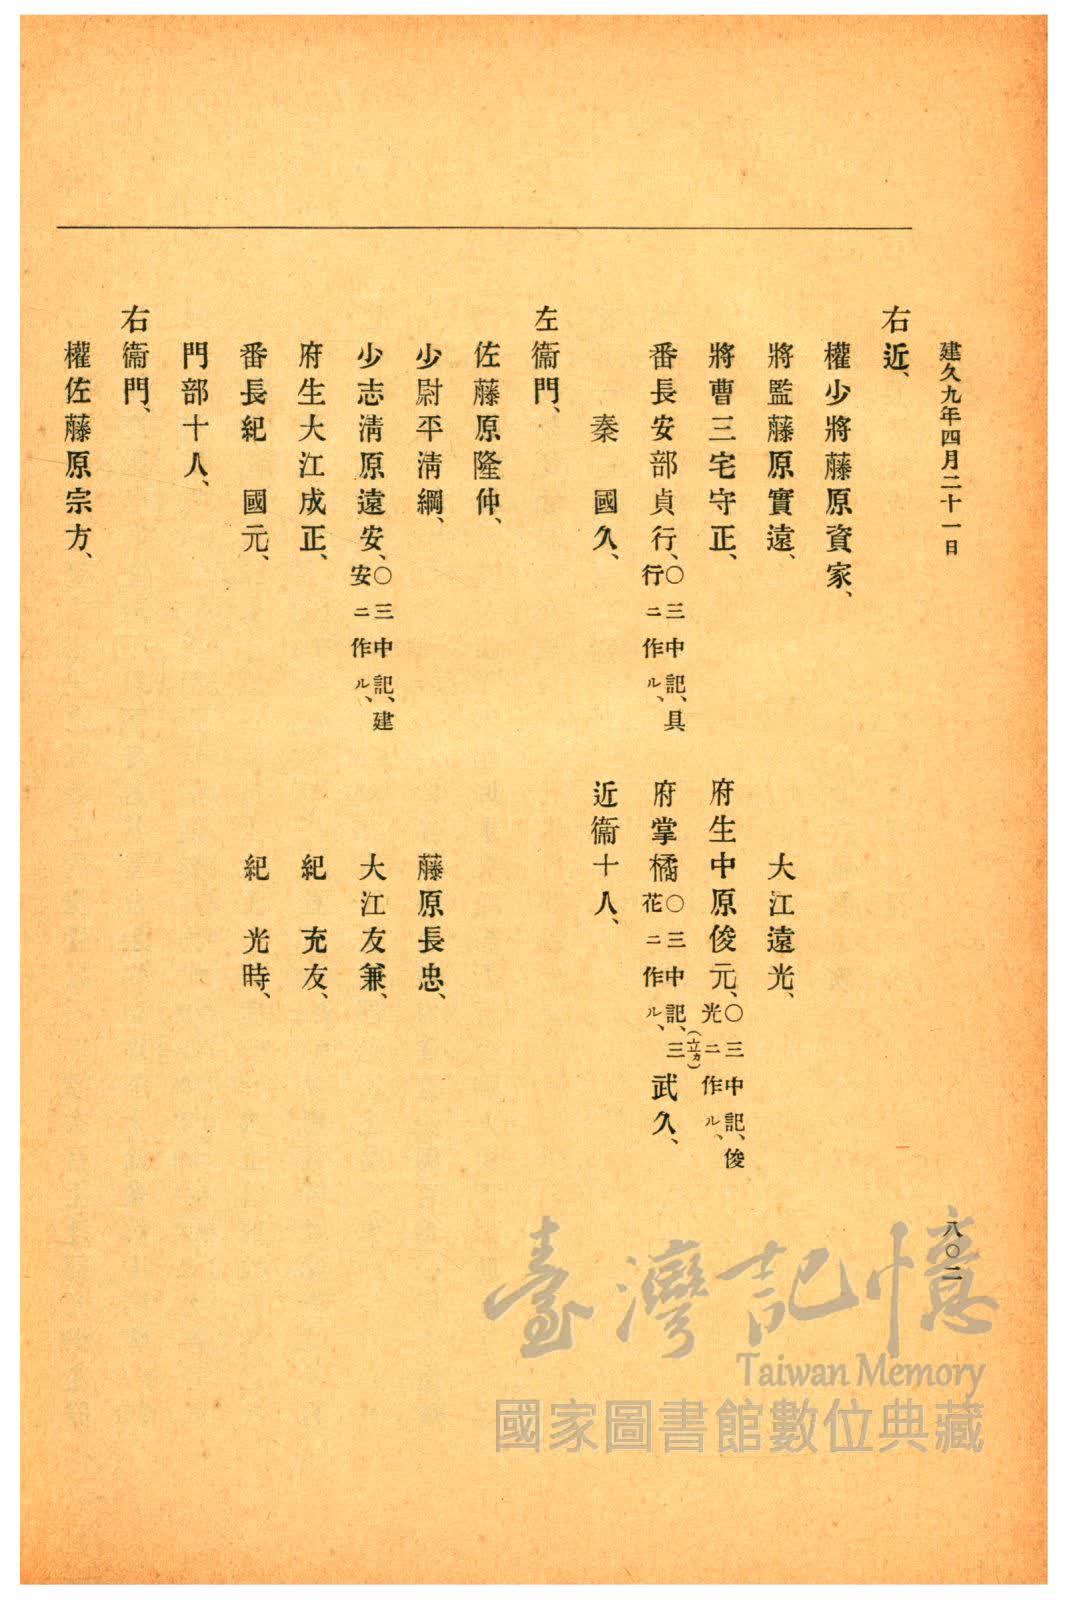 建久九年四月二十一日
八〇二
右近、
權少將藤原資家、
將監藤原實遠、　大江遠光、
將曹三宅守正、　府生中原俊元、〇三中記、俊光ニ作ル、
番長安部貞行、〇三中記、具行ニ作ル、　府掌橘〇三中記、三(立カ)花ニ作ル、武久、
秦　國久、　近衞十人、
左衞門、
佐藤原隆仲、
少尉平淸綱、　藤原長忠、
少志淸原遠安、〇三中記、建安ニ作ル、　大江友兼、
府生大江成正、　紀　充友、
番長紀　國元、　紀　光時、
門部十人、
右衞門、
權佐藤原宗方、
臺灣記憶
Taiwan Memory
國家圖書館數位典藏